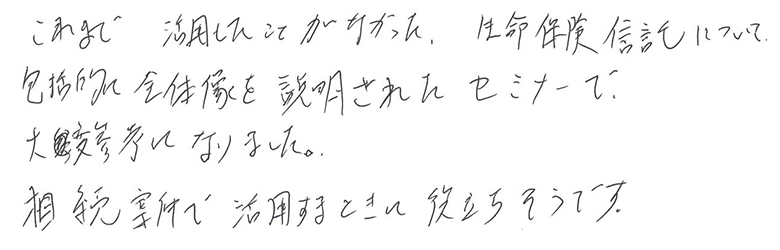 これまで 活用したことがなかった、生命保険信託について
包括的に全体像を説明されたセミナーで、
大変参考になりました。
相続案件で活用するときに役立ちそうです。